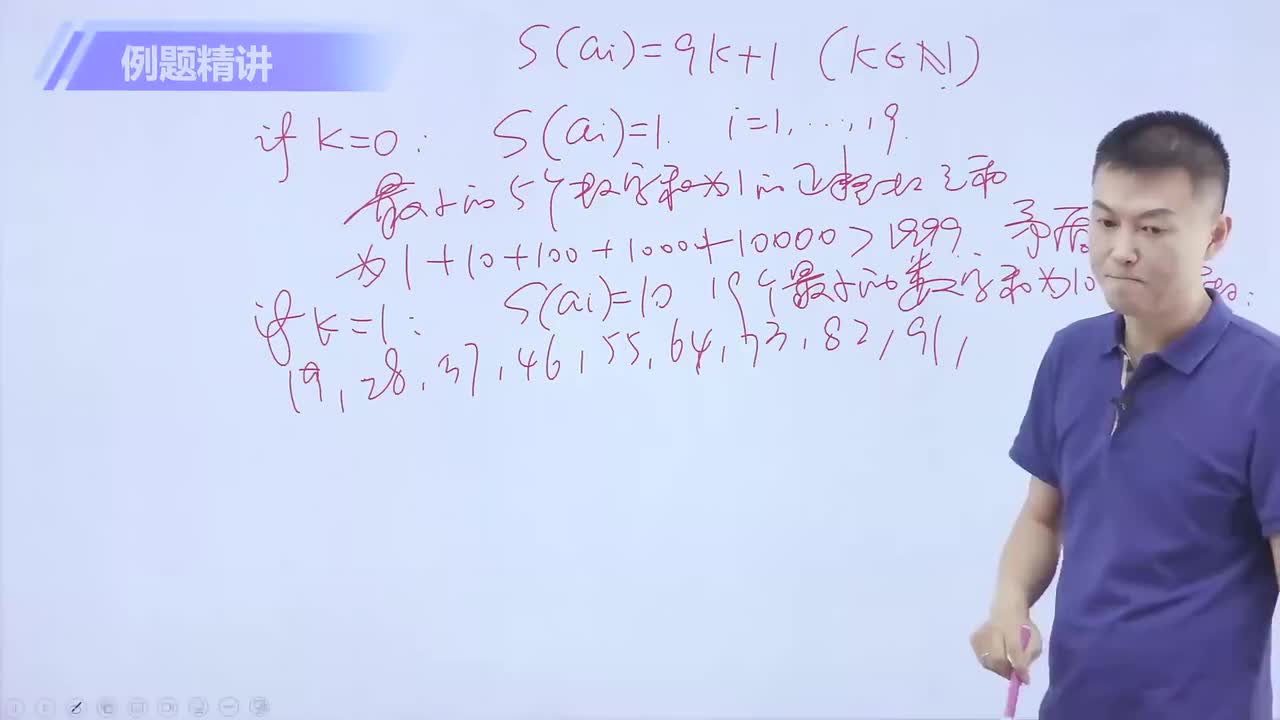 例题精讲
S(ai)=9k+1 (k∈N)
if k=0: S(ai)=1. i=1,…,19.
最小的5个数字和为1的正整数之和
为1+10+100+1000+10000>1999. 矛盾
if k=1: S(ai)=10 19个最小的数字和为10
19,28,37,46,55,64,73,82,91,